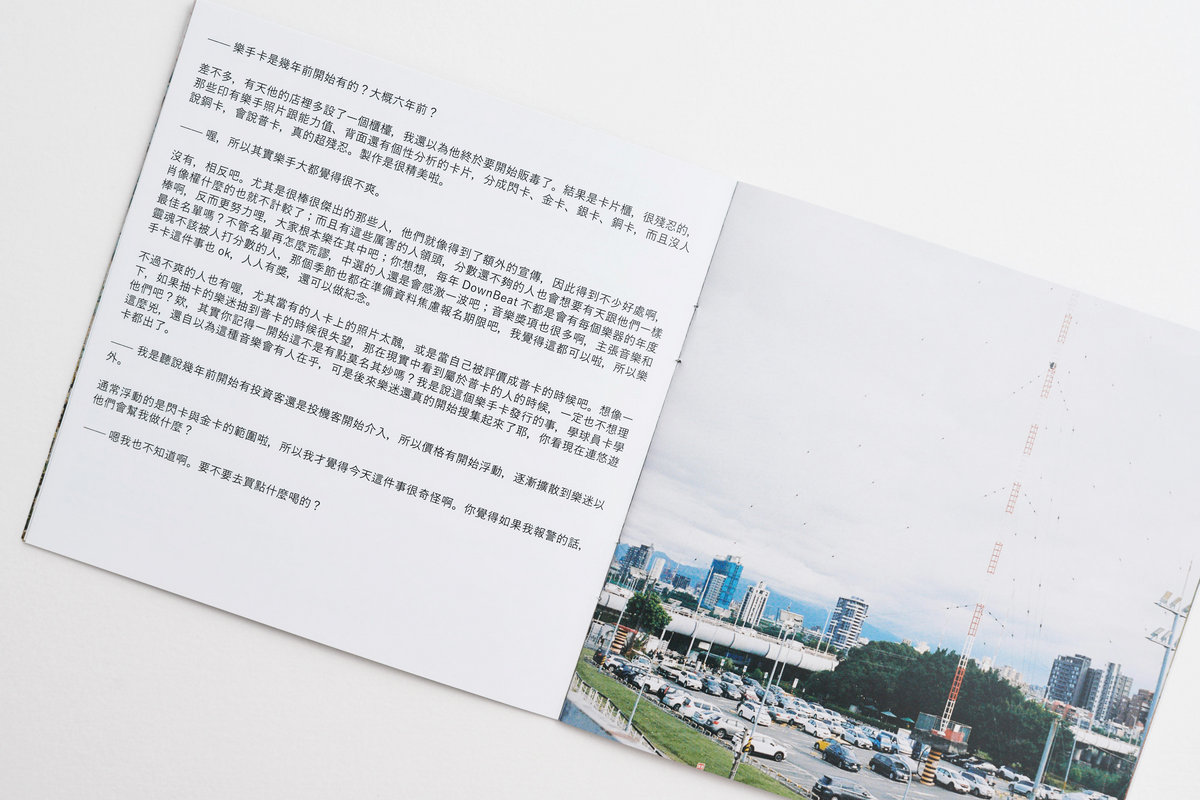 —— 樂手卡是幾年前開始有的？大概六年前？
差不多，有天他的店裡多設了一個櫃檯，我還以為他終於要開始販毒了。結果是卡片櫃，很殘忍的，
那些印有樂手照片跟能力值、背面還有個性分析的卡片，分成閃卡、金卡、銀卡、銅卡，而且沒人
說銅卡，會說普卡，真的超殘忍。製作是很精美啦。
—— 喔，所以其實樂手大都覺得很不爽。
沒有，相反吧。尤其是很棒很傑出的那些人，他們就像得到了額外的宣傳，因此得到不少好處啊，
肖像權什麼的也就不計較了；而且有這些厲害的人領頭，分數還不夠的人也會想要有天跟他們一樣
棒啊，反而更努力哩，大家根本樂在其中吧；你想想，每年 DownBeat 不都是會有每個樂器的年度
最佳名單嗎？不管名單再怎麼荒謬，中選的人還是會感激一波吧；音樂獎項也很多啊，主張音樂和
靈魂不該被人打分數的人，那個季節也都在準備資料焦慮報名期限吧，我覺得這都可以啦，所以樂
手卡這件事也 ok，人人有獎，還可以做紀念。
不過不爽的人也有喔，尤其當有的人卡上的照片太醜，或是當自己被評價成普卡的時候吧。想像一
下，如果抽卡的樂迷抽到普卡的時候很失望，那在現實中看到屬於普卡的人的時候，一定也不想理
他們吧？欸，其實你記得一開始這不是有點莫名其妙嗎？我是說這個樂手卡發行的事，學球員卡學
這麼兇，還自以為這種音樂會有人在乎，可是後來樂迷還真的開始搜集起來了耶，你看現在連悠遊
卡都出了。
—— 我是聽說幾年前開始有投資客還是投機客開始介入，所以價格有開始浮動，逐漸擴散到樂迷以
外。
通常浮動的是閃卡與金卡的範圍啦，所以我才覺得今天這件事很奇怪啊。你覺得如果我報警的話，
他們會幫我做什麼？
—— 嗯我也不知道啊。要不要去買點什麼喝的？